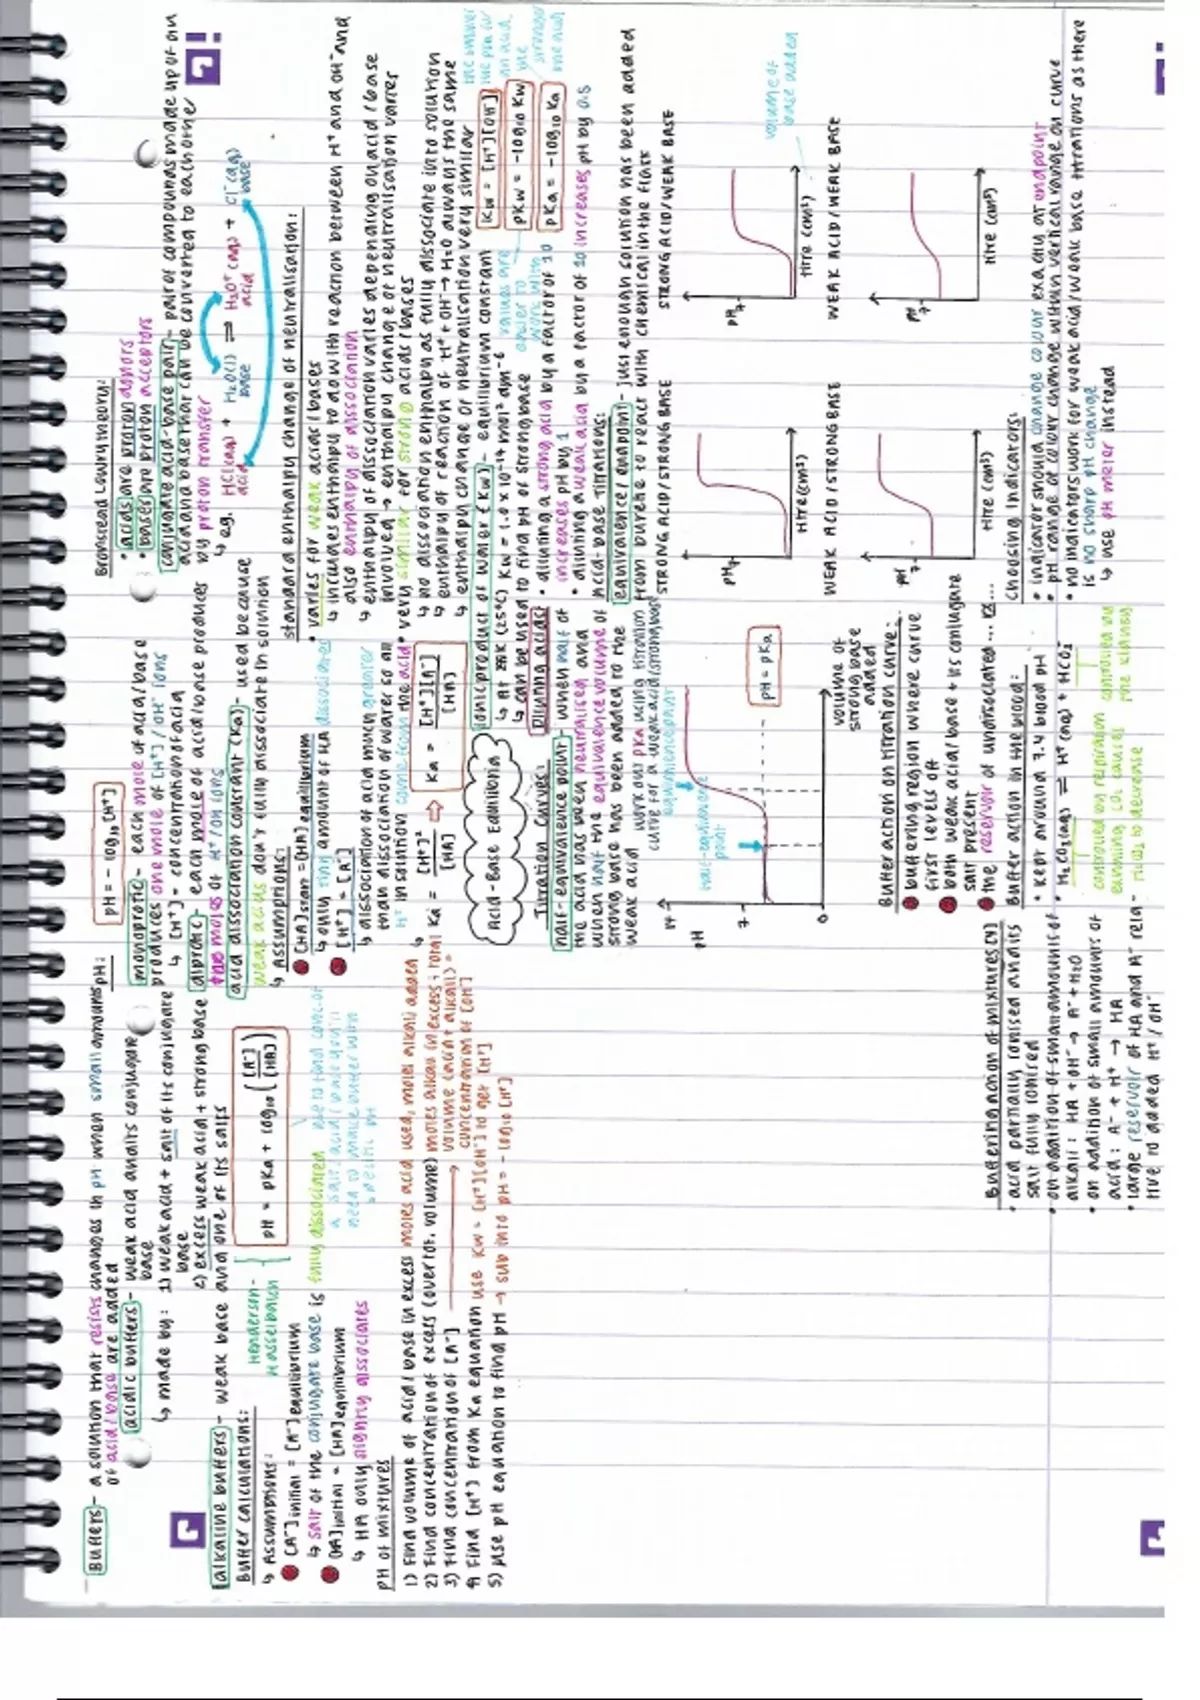 Buffers - a solution that resists changes in pH when small amounts
of acid/base are added
acidic buffers - weak acid and its conjugate
base
↳ made by: 1) weak acid + salt of its conjugate
base
2) excess weak acid + strong base
alkaline buffers - weak base and one of its salts
Buffer calculations:
Henderson-
Hasselbalch
pH = pKa + log10 ([A-]/[HA])
↳ Assumptions:
[A-] initial = [A-] equilibrium
↳ salt of the conjugate base is fully dissociated
[HA] initial = [HA] equilibrium
↳ HA only slightly dissociates
use to find conc. of
a salt, acid/base you'll
need to make buffer with
specific pH
pH of mixtures
1) Find volume of acid/base in excess moles acid used, moles alkali added
2) Find concentration of excess (over tot. volume) moles alkali in excess ÷ total
volume (acid + alkali) =
concentration of [OH-]
3) Find concentration of [A-]
4) Find [H+] from Ka equation use Kw = [H+][OH-] to get [H+]
5) Use pH equation to find pH → sub into pH = -log10 [H+]
pH:
pH = -log10 [H+]
monoprotic - each mole of acid/base
produces one mole of [H+] / OH- ions
↳ [H+] = concentration of acid
diprotic - each mole of acid/base produces
two moles of H+/OH- ions
acid dissociation constant (Ka) - used because
weak acids don't fully dissociate in solution
↳ Assumptions:
[HA] start = [HA] equilibrium
↳ only tiny amount of HA dissociates
[H+] = [A-]
↳ dissociation of acid much greater
than dissociation of water so all
H+ in solution come from the acid
↳ Ka = [H+]²/[HA] ⇨ Ka = [H+][A-]/[HA]
Acid-Base Equilibria
Titration Curves:
half-equivalence point - when half of
the acid has been neutralised and
when half the equivalence volume of
strong base has been added to the
weak acid
work out pKa using titration
curve for a weak acid/strong base
equivalence point
half-equivalence
point
pH = pKa
14
pH
7
0
volume of
strong base
added
Buffering action of mixtures
• acid partially ionised and its
salt fully ionised
• on addition of small amounts of
alkali: HA + OH- → A- + H2O
• on addition of small amounts of
acid: A- + H+ → HA
• large reservoir of HA and A- rela-
tive to added H+ / OH-
Buffer action on titration curve:
buffering region where curve
first levels off
both weak acid/base + its conjugate
salt present
the reservoir of undissociated...
Buffer action in the blood:
• kept around 7.4 blood pH
• H2CO3(aq) ⇌ H+(aq) + HCO3-
controlled by respiration
controlled by
the kidneys
Brønsted Lowry theory:
• acids are proton donors
• bases are proton acceptors
conjugate acid-base pair - pair of compounds made up of an
acid and base that can be converted to each other
by proton transfer
↳ eg. HCl(aq) + H2O(l) ⇌ H3O+(aq) + Cl-(aq)
acid base acid base
standard enthalpy change of neutralisation:
• varies for weak acids/bases
↳ includes enthalpy to do with reaction between H+ and OH- and
also enthalpy of dissociation
↳ enthalpy of dissociation varies depending on acid/base
involved → enthalpy change of neutralisation varies
• very similar for strong acids/bases
↳ no dissociation enthalpy as fully dissociate into solution
↳ enthalpy of reaction of H+ + OH- → H2O always the same
↳ enthalpy change of neutralisation very similar
ionic product of water (Kw) - equilibrium constant
↳ at 25K (25°C) Kw = 1.0 x 10-14 mol² dm-6
↳ can be used to find pH of strong base
Kw = [H+][OH-]
pKw = -log10 Kw
pKa = -log10 Ka
values are
easier to
work with
Diluting acids: • diluting a strong acid by a factor of 10
increases pH by 1
• diluting a weak acid by a factor of 10 increases pH by 0.5
Acid-base titrations:
equivalence/endpoint - just enough solution has been added
from burette to react with chemical in the flask
STRONG ACID/STRONG BASE
STRONG ACID/WEAK BASE
pH
7
titre (cm³)
pH
7
titre (cm³)
volume of
base added
WEAK ACID/STRONG BASE
WEAK ACID/WEAK BASE
pH
7
titre (cm³)
pH
7
titre (cm³)
Choosing indicators:
• indicator should change colour exactly at endpoint
• pH range of colour change within vertical range on curve
• no indicators work for weak acid/weak base titrations as there
is no sharp pH change
↳ use pH meter instead